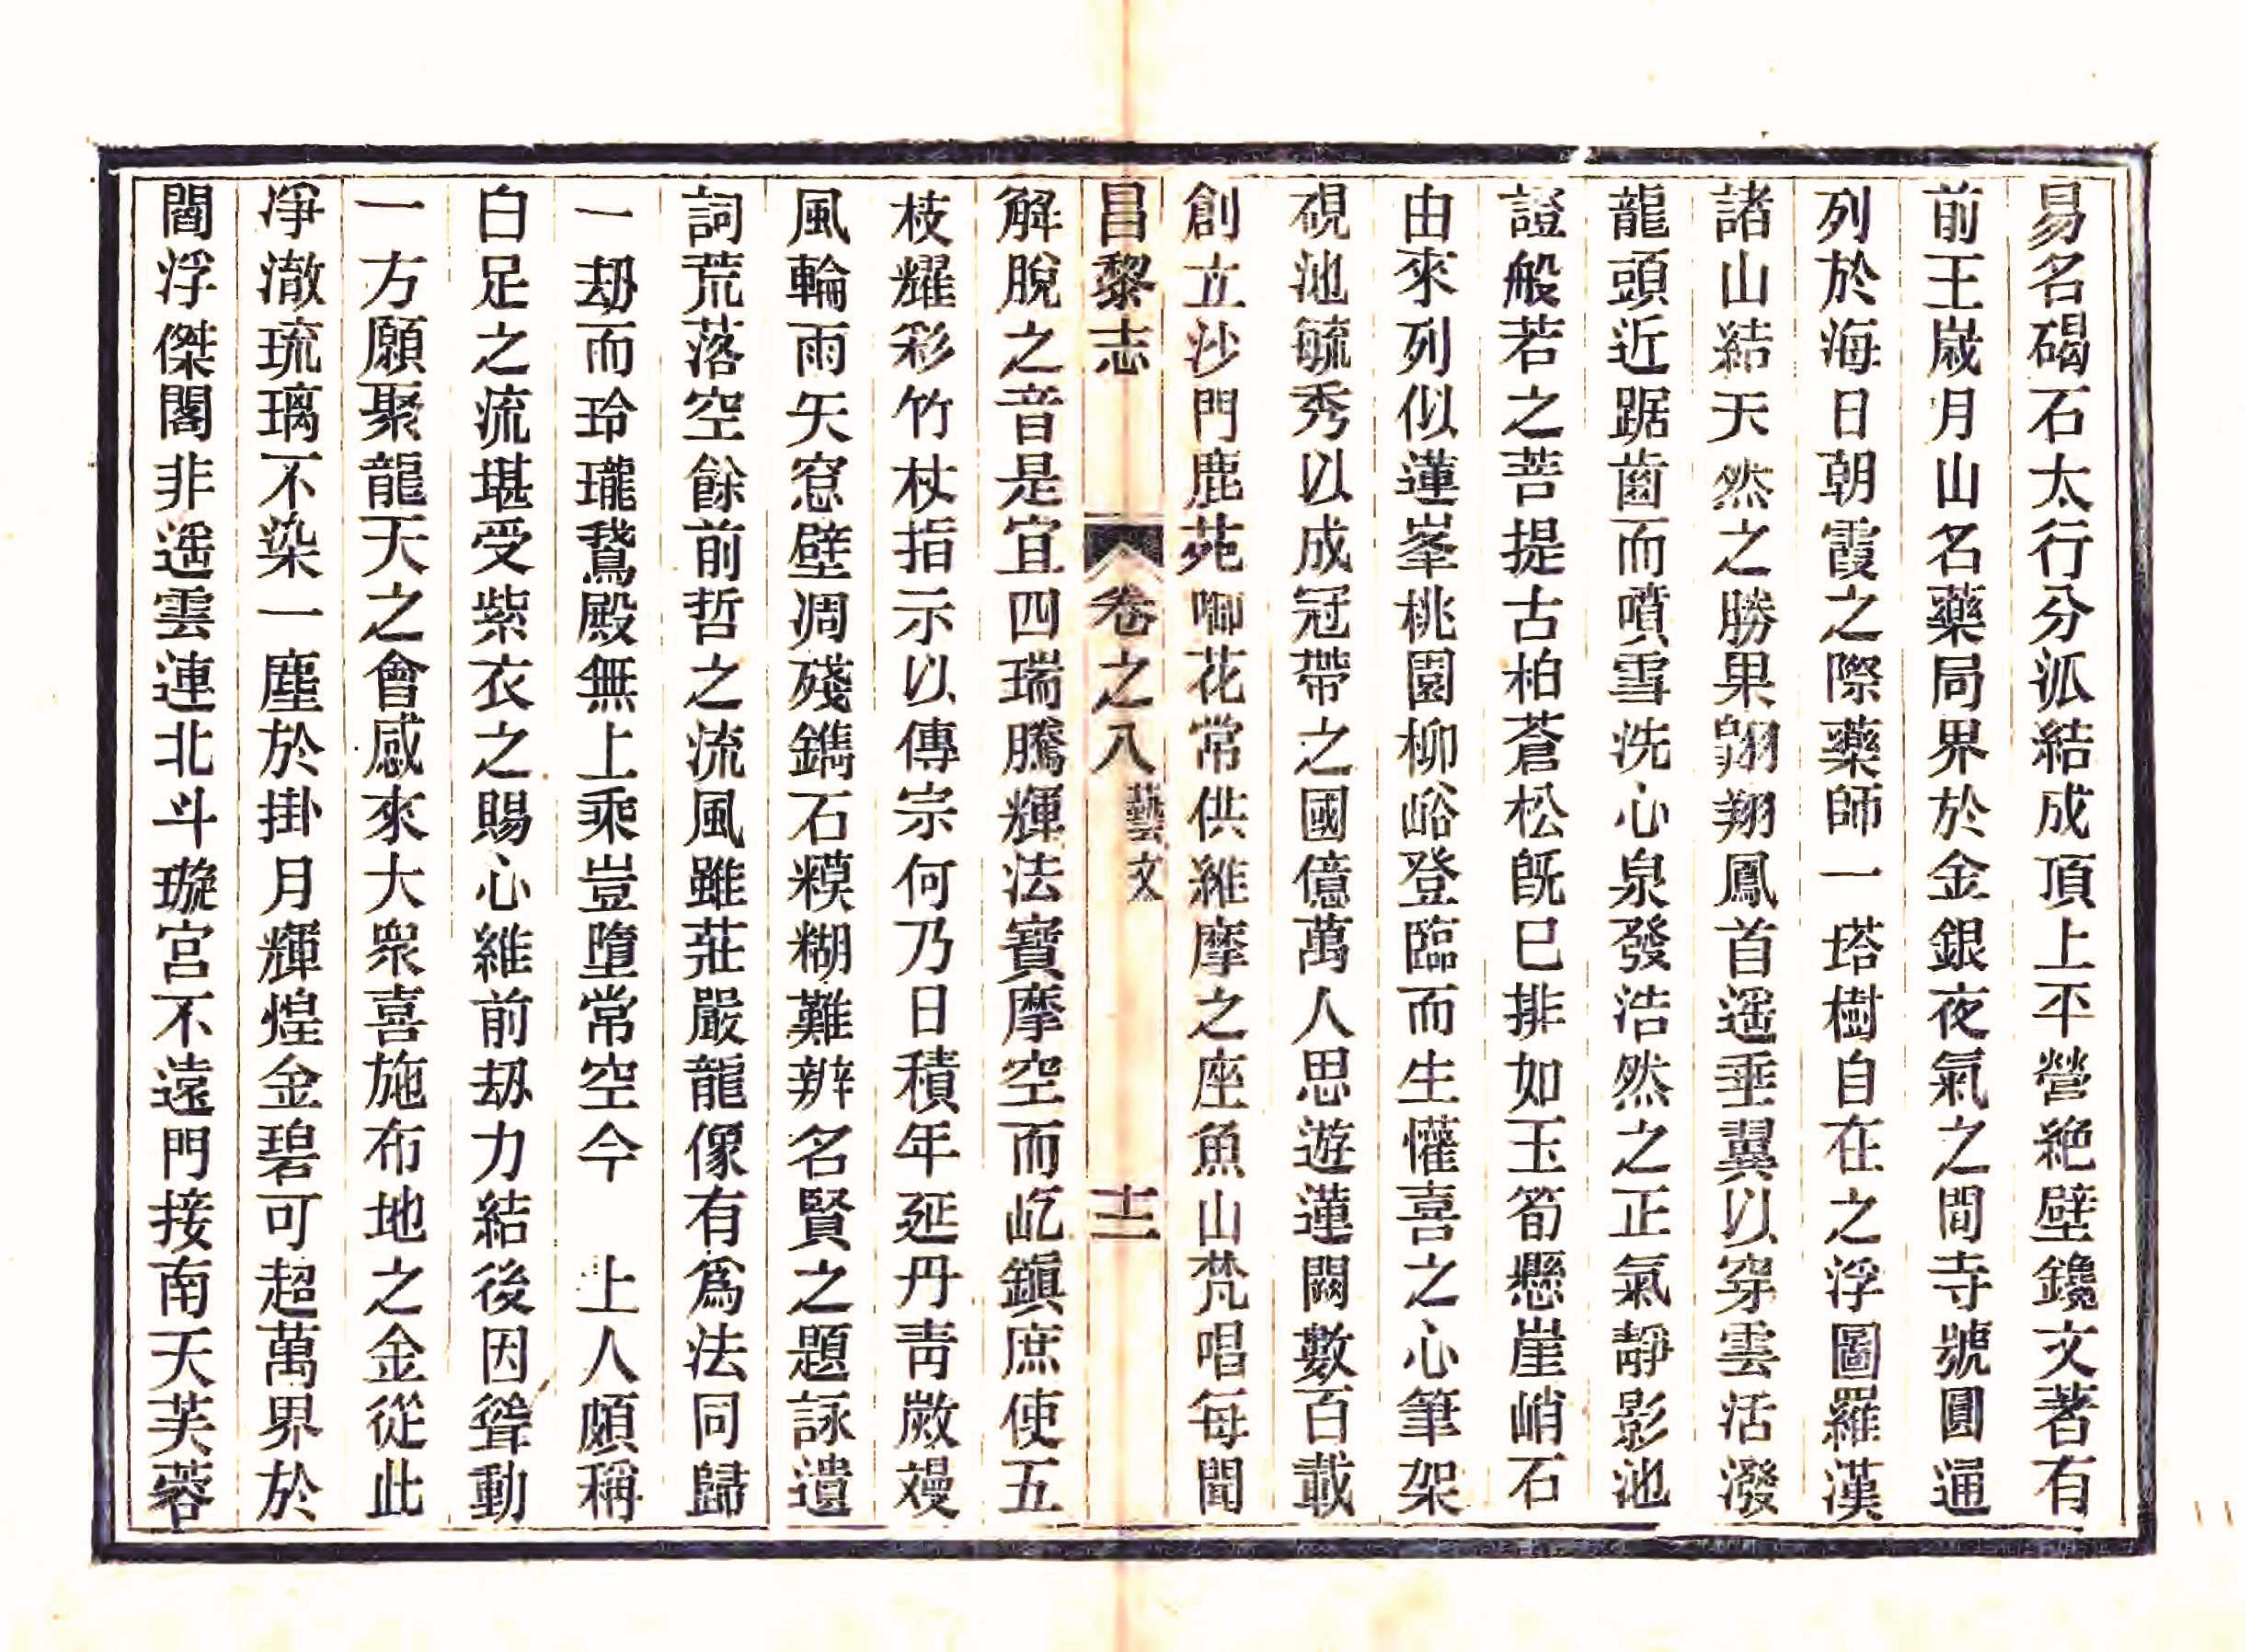 易名碣石太行分派結成頂上平營絶壁鑱文著有
前王嵗月山名藥局界於金銀夜氣之間寺號圓通
列於海日朝霞之際藥師一塔樹自在之浮圖羅漢
諸山結天然之勝果翱翔鳳首遥垂翼以穿雲活潑
龍頭近踞齒而噴雪洗心泉發浩然之正氣靜影池
證般若之菩提古柏蒼松旣巳排如玉筍懸崖峭石
由來列似蓮峯桃園柳峪登臨而生懽喜之心筆架
硯池毓秀以成冠帶之國億萬人思遊蓮闕數百載
創立沙門鹿苑啣花常供維摩之座魚山梵唱每聞
昌黎志 卷之八 藝文 十二
解脫之音是宜四瑞騰輝法寶摩空而屹鎭庶使五
枝耀彩竹杖指示以傳宗何乃日積年延丹靑敳熳
風輪雨矢窓壁凋殘鐫石糢糊難辨名賢之題詠遺
詞荒落空餘前哲之流風雖莊嚴龍像有爲法同歸
一刼而玲瓏鵞殿無上乘豈墮常空今 上人頗稱
白足之流堪受紫衣之賜心維前刼力結後因聳動
一方願聚龍天之會感來大衆喜施布地之金從此
凈澈琉璃不染一塵於掛月輝煌金碧可超萬界於
閻浮傑閣非遥雲連北斗璇宫不遠門接南天芙蓉